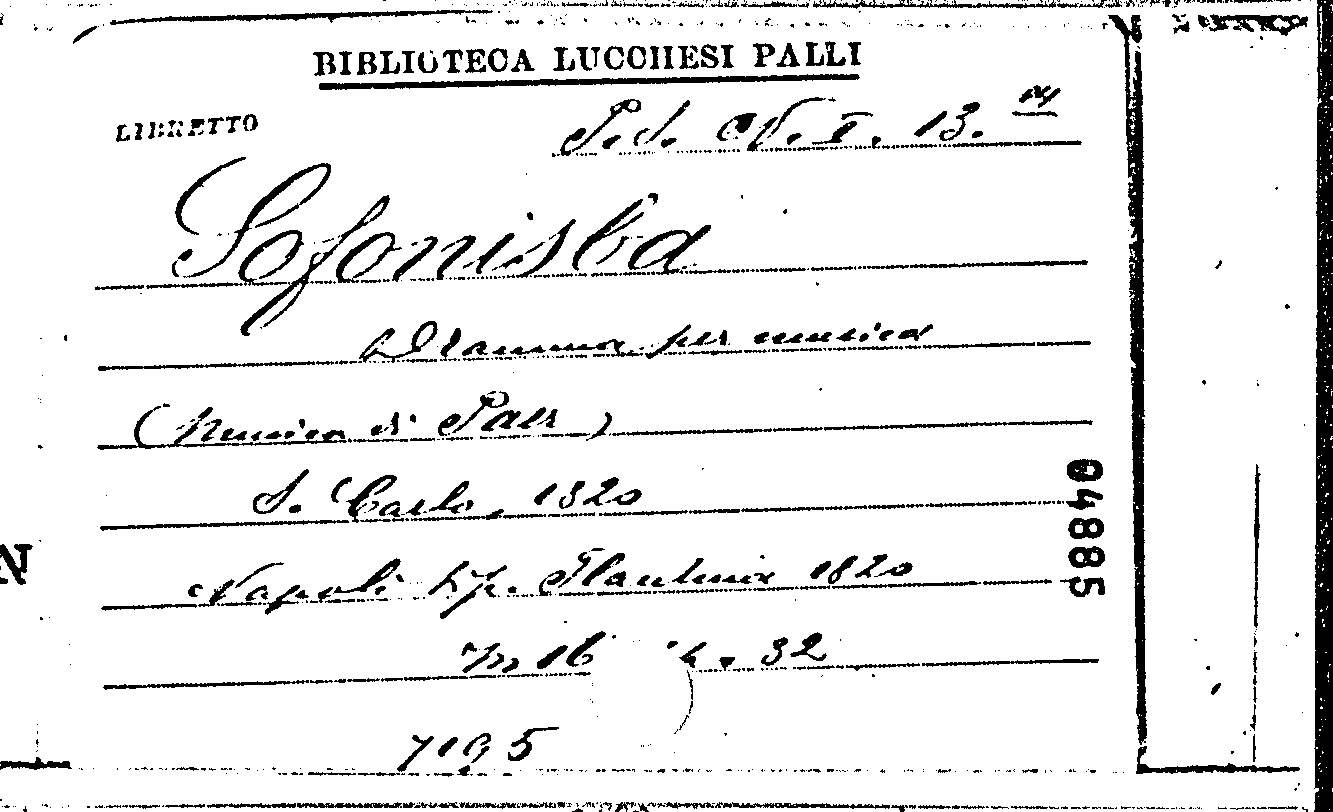 BIBLIOTECA LUCCHESI PALLI
LIBRETTO
13.
Sofonisba
Dramma per musica
(Musica di Paer)
S. Carlo, 1820
Napoli tip. Flautina 1820
in 16 p. 32
7195
04885
N